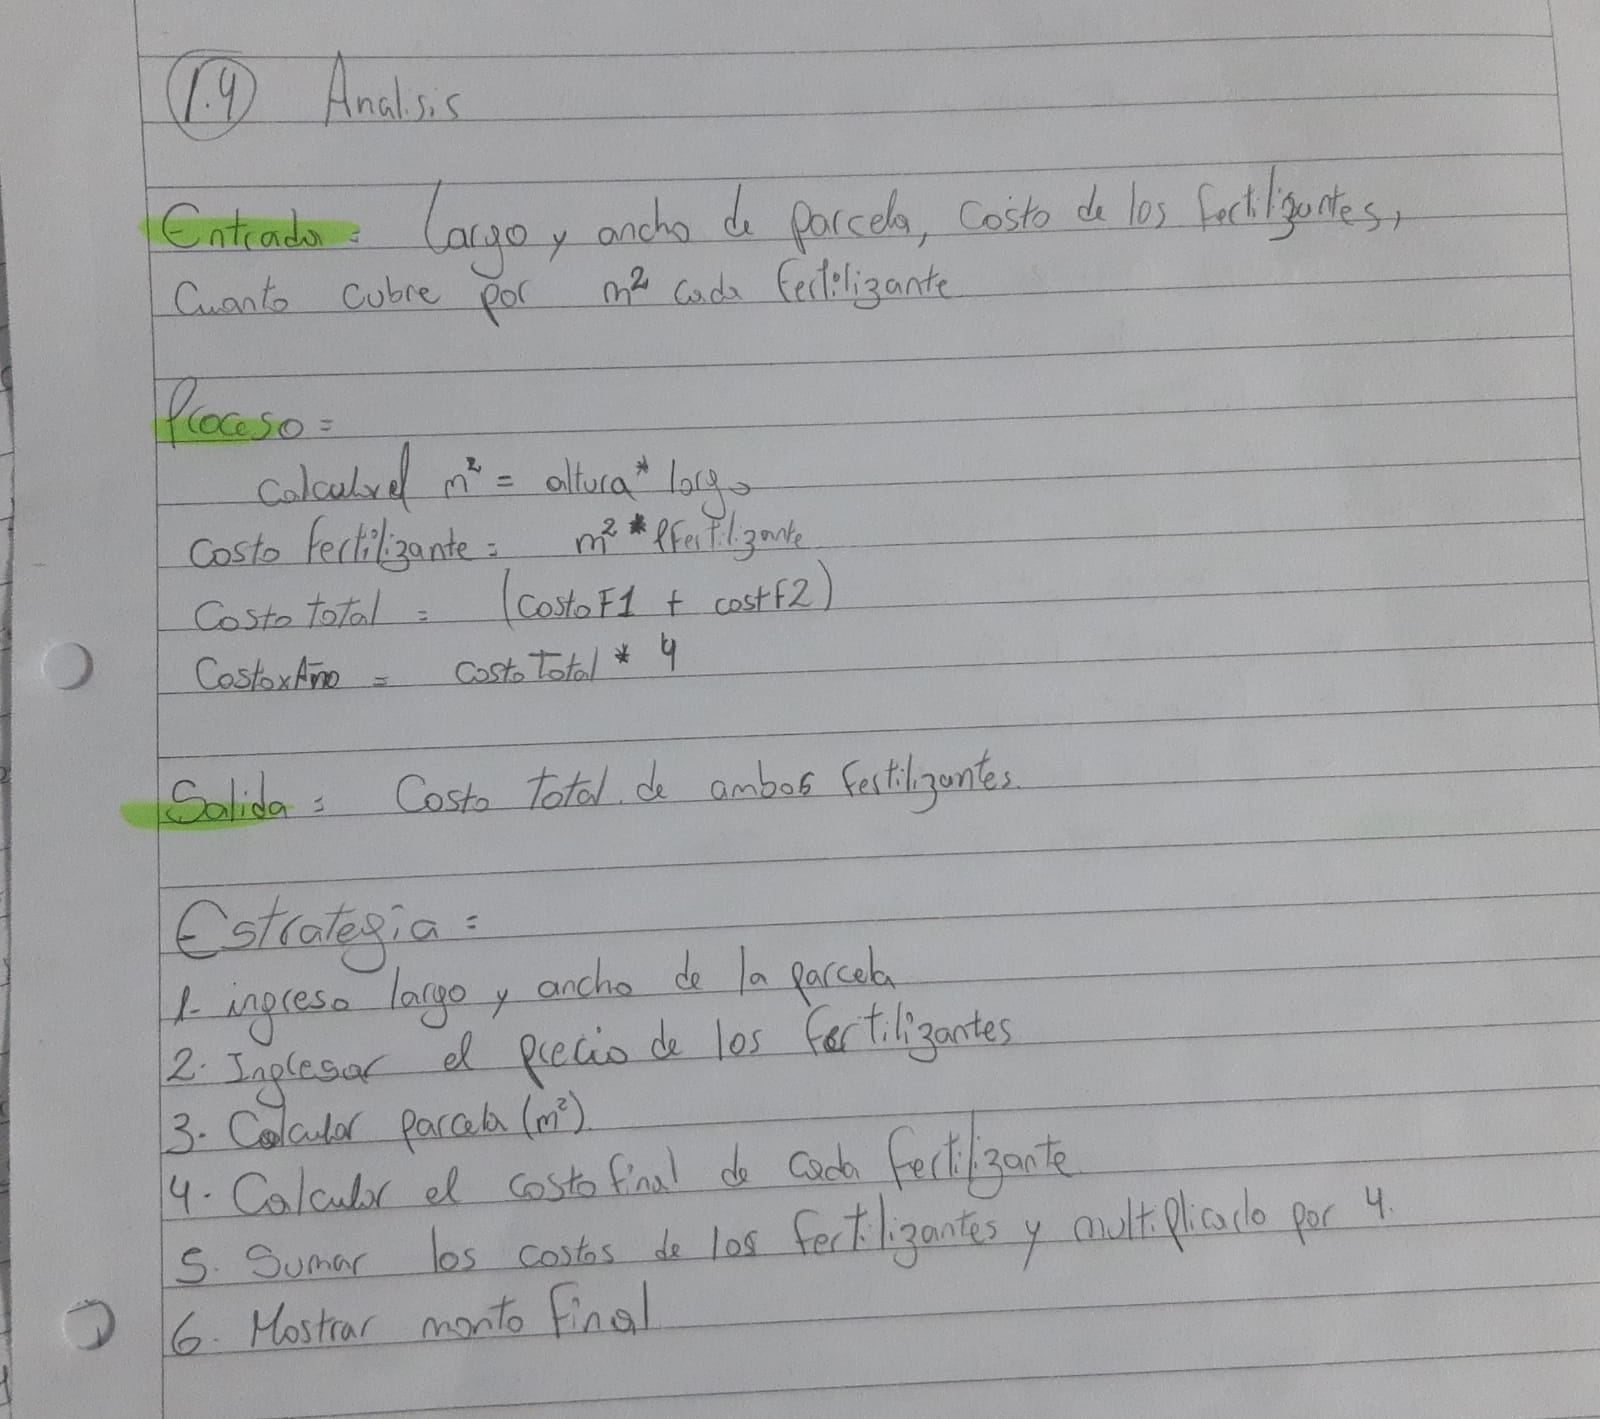 1.4 Analisis
Entrada= largo y ancho de parcela, costo de los fertilizantes,
Cuanto cubre por m² cada fertilizante
Proceso=
Calcular el m² = altura * largo
Costo fertilizante= m² * Pfertilizante
Costo total = (costoF1 + costF2)
CostoxAño = costoTotal * 4
Salida= Costo total de ambos fertilizantes.
Estrategia=
1- ingreso largo y ancho de la parcela
2. Ingresar el precio de los fertilizantes
3. Calcular parcela (m²).
4. Calcular el costo final de cada fertilizante
5. Sumar los costos de los fertilizantes y multiplicarlo por 4.
6. Mostrar monto final